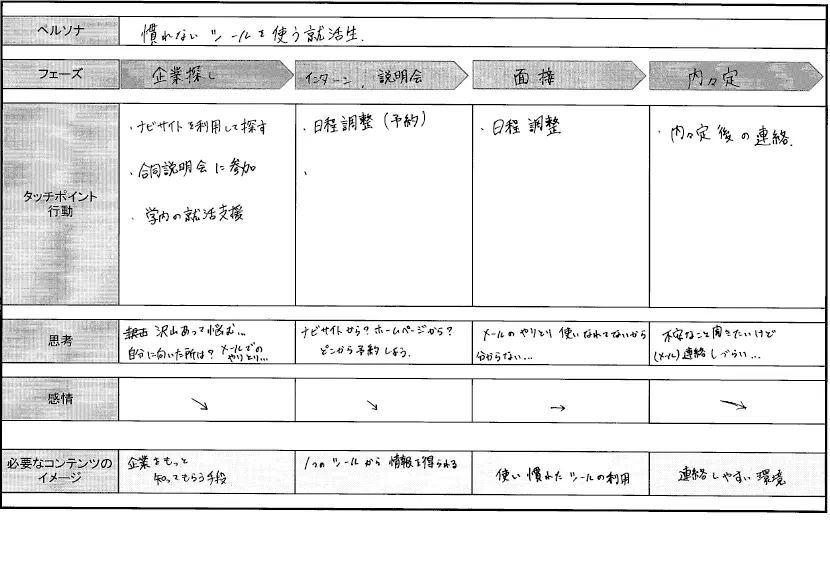 ペルソナ
慣れないツールを使う就活生.
フェーズ
企業探し
インターン, 説明会
面接
内々定
タッチポイント
行動
・ナビサイトを利用して探す
・合同説明会に参加
・学内の就活支援
・日程調整(予約)
・
・日程調整
・内々定後の連絡.
思考
沢山あって悩む...
自分に向いた所は? メールでの
やりとり...
ナビサイトから?ホームページから?
どこから予約しよう.
メールのやりとり 使いなれてないから
分からない...
不安なこと聞きたいけど
(メール)連絡しづらい...
感情
↘
↘
→
↘
必要なコンテンツの
イメージ
企業をもっと
知ってもらう手段
1つのツールから情報を得られる
使い慣れたツールの利用
連絡しやすい環境